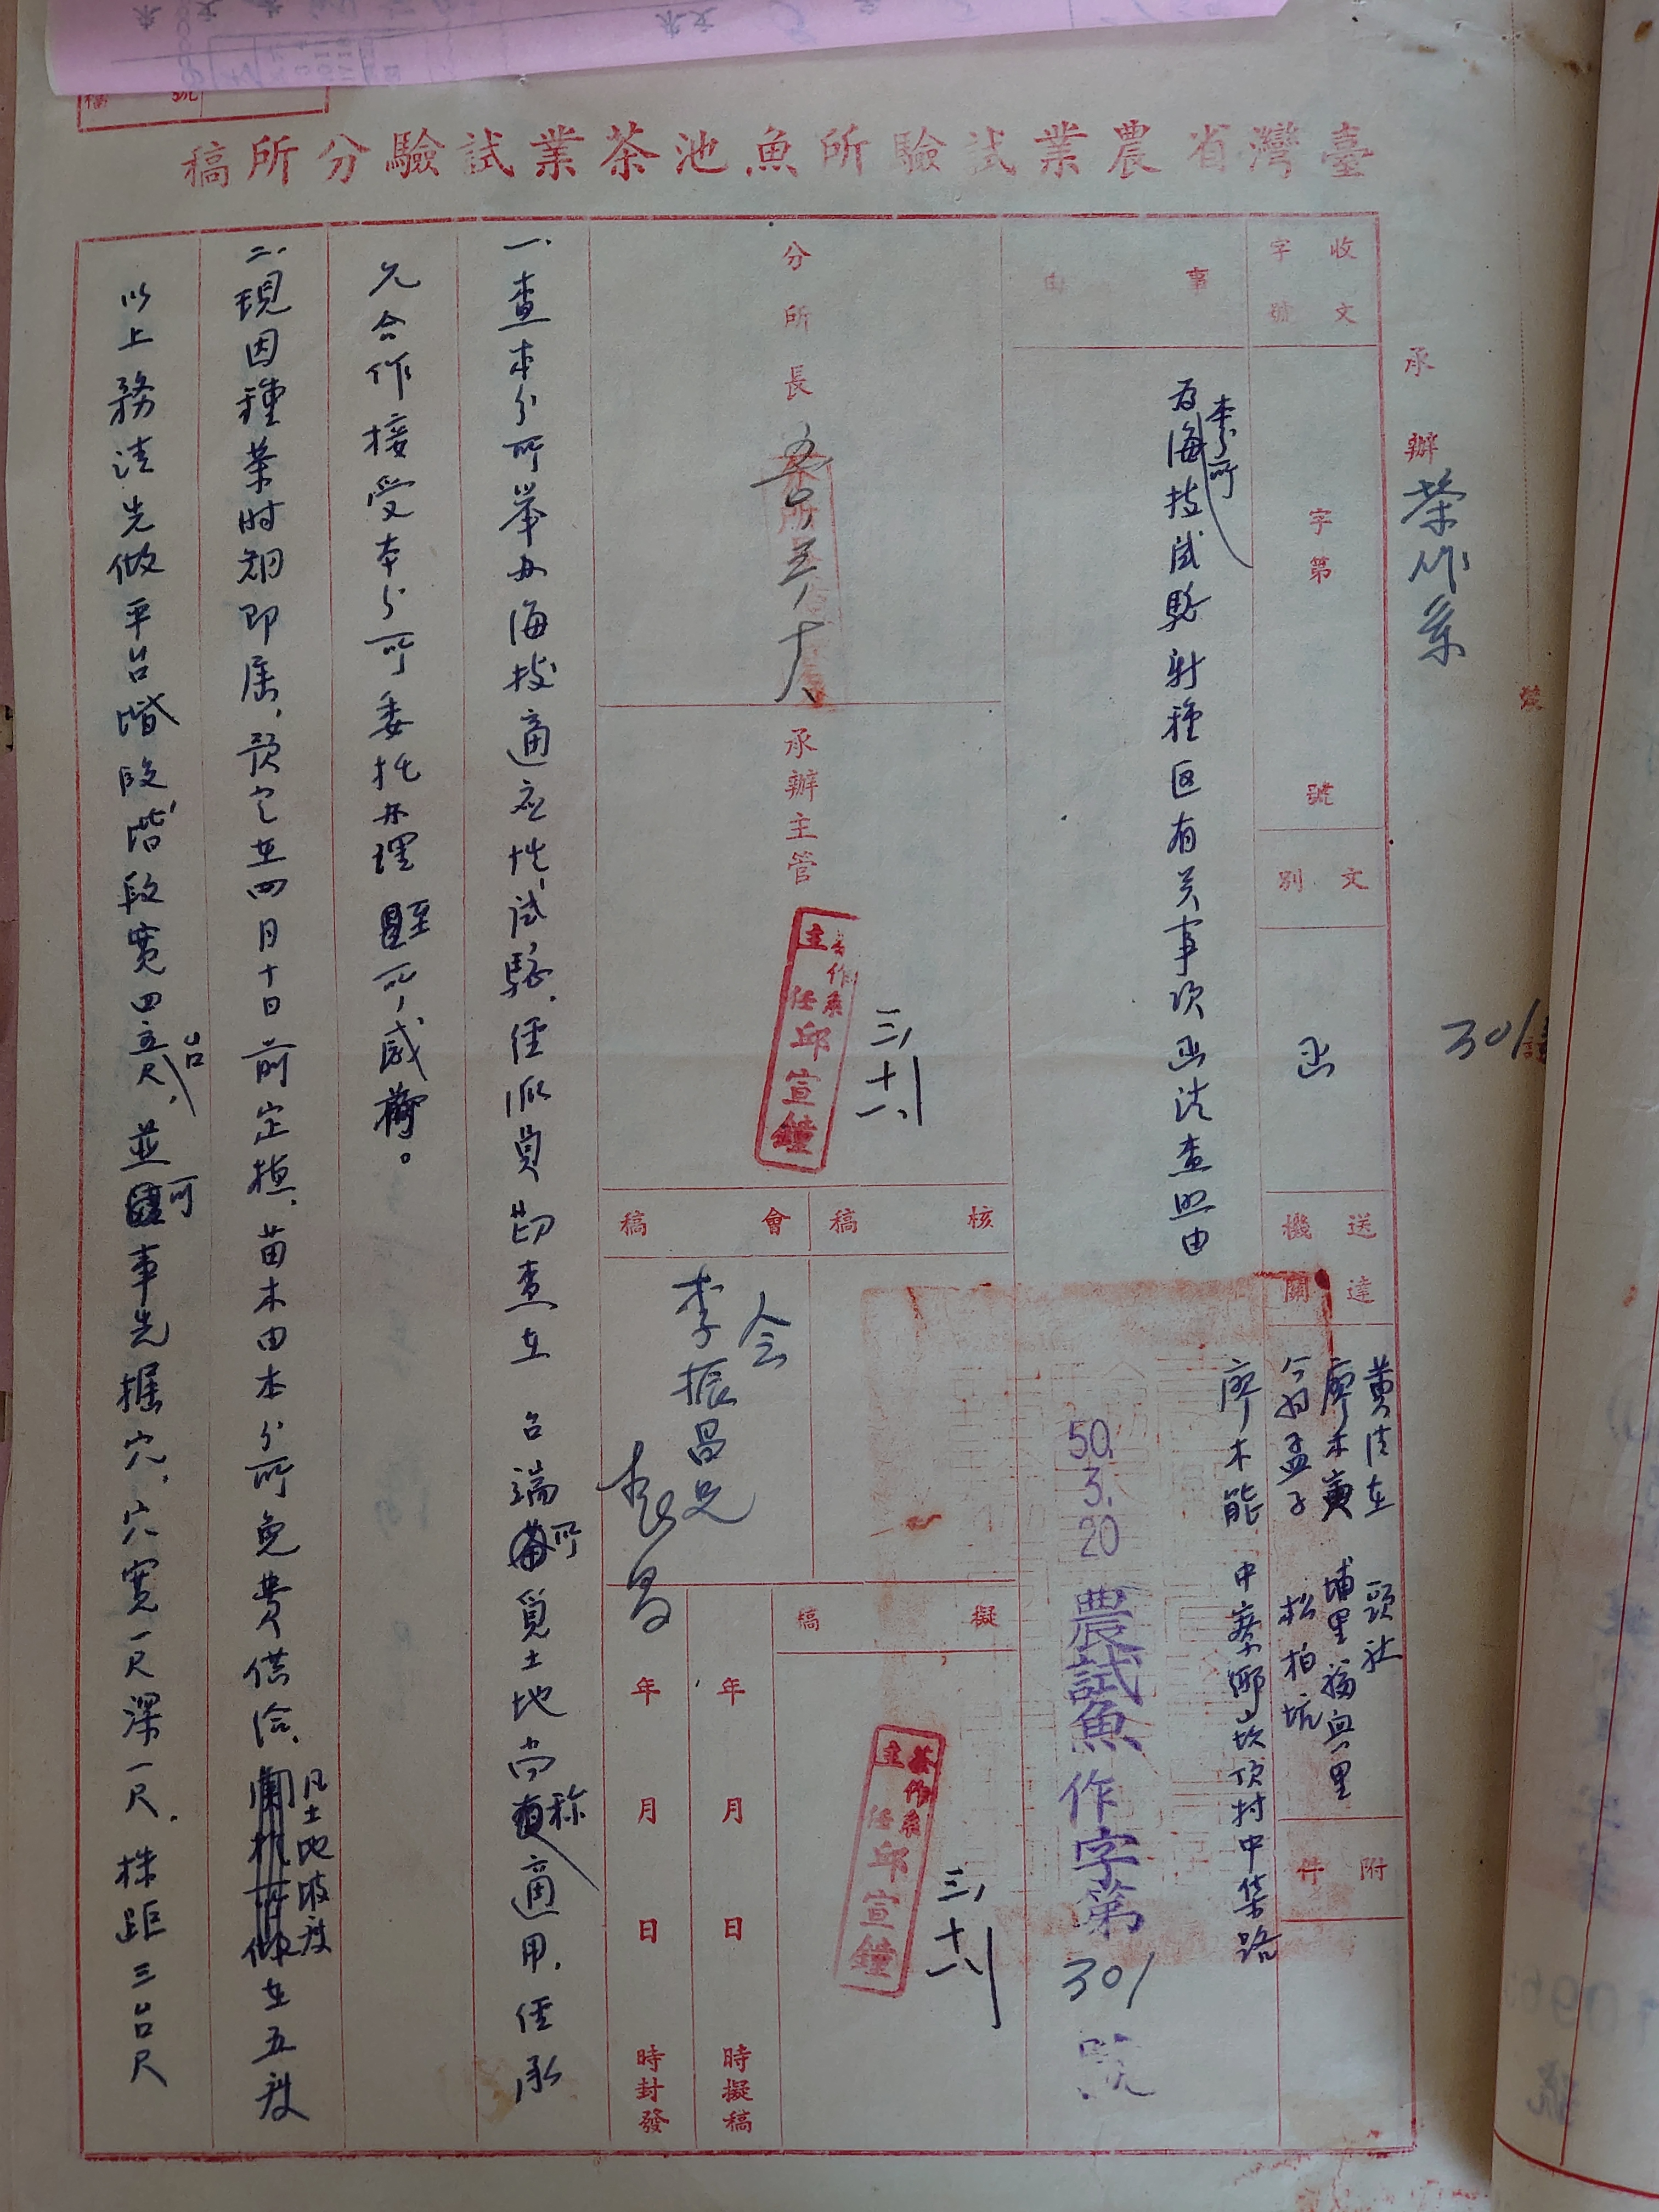 臺灣省農業試驗所魚池茶業試驗分所稿
承辦 茶作系
301
收文
字號
字第 號
文別
函
送達機關
黃清在 頭社
廖木寅 埔里
翁孟子 松柏坑
廖木能 中寮鄉崁頂村中集路
附件
事由
為本分所海拔試驗 種區有关事項函請查照由
50.3.20
農試魚作字第301號
分所長
承辦主管
茶作系主任邱宣鐘
三、十八
核稿
會稿
会
李振昌兄
擬稿
茶作系主任邱宣鐘
三、十八
年 月 日 時擬稿
年 月 日 時封發
一、查本分所举办海拔適应性試驗、經派員勘查在 台端所覓土地尚称適用、經承
允合作接受本分所委托办理至所感荷。
二、現因種茶时期即屆,預定在四月十日前定植、苗木由本分所免費供給、凡土地坡度在五度
以上務請先做平台階段階段寬四台尺,並可事先掘穴、穴寬一尺深一尺、株距三台尺